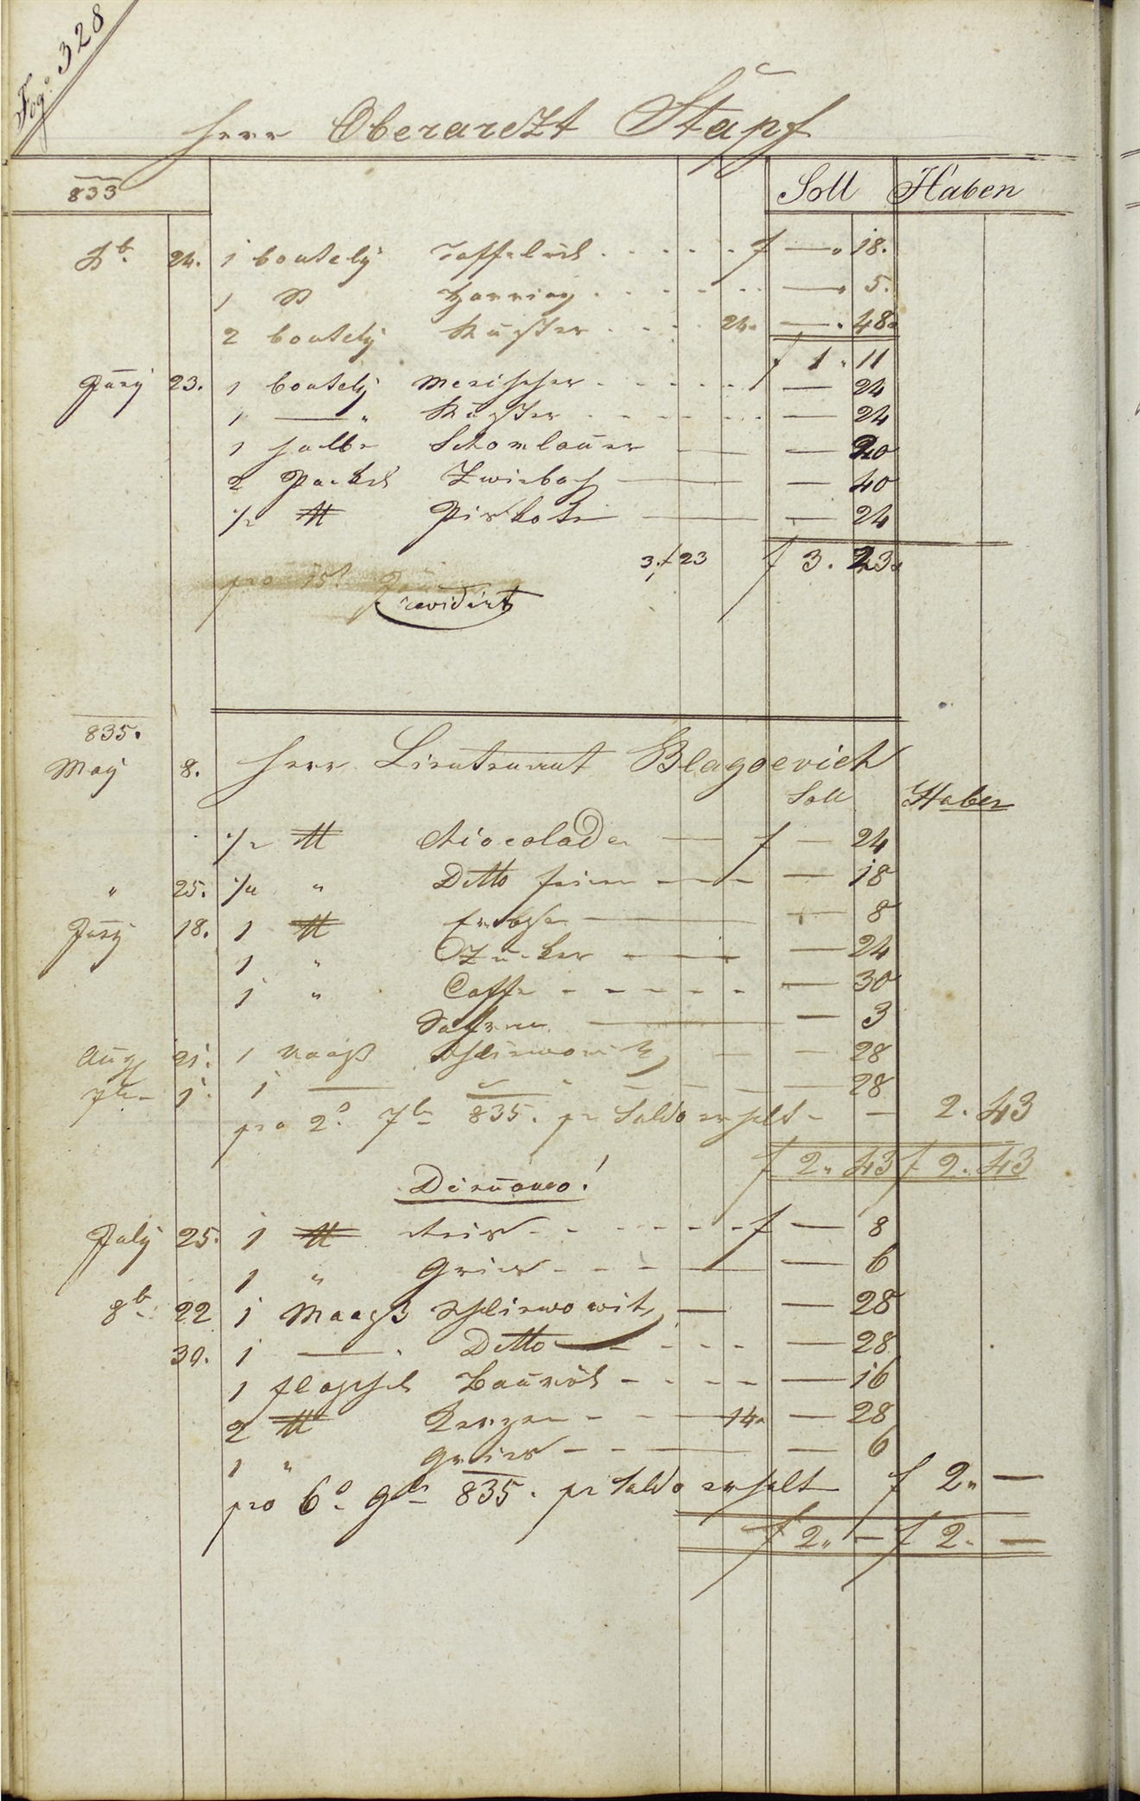 Fog.° 328
Herr Oberarczt Stapf
833
Soll Haben
Xb. 24. 1 boutely f — 18.
1 D° Harring — 5.
2 boutely Ruster 24. — 48.
f 1. 11
Juny 23. 1 boutely — 24
1 — " Ruster — 24
1 halbe Schomlauer — 20
2 Packet Zwieback — 40
½ ℔ Piskoten — 24
3 f 23 f 3. 23.
revidirt
835.
May 8. Herr Lieutenant Blagoevich
Soll Haben
½ ℔ Chiocolade f — 24
" 25. ¼ " Ditto feine — 18
Juny 18. 1 ℔ Erbse — 8
1 " Zucker — 24
1 " Caffe — 30
— 3
Aug 21. 1 Maaß Schliwowitz — 28
7br 1. 1 — " — 28
pro 2° 7br 835. pr Saldo erhalt — 2. 43
f 2. 43 f 2. 43
July 25. 1 ℔ Reis f — 8
1 " Gries — 6
8b. 22 1 Maaß Schliwowitz — 28
30. 1 — " Ditto — 28
1 flaschel Baumöl — 16
2 ℔ Kerzen 14. — 28
1 " Gries — 6
pro 6° 9br 835. pr Saldo erhalt f 2. —
f 2. — f 2. —